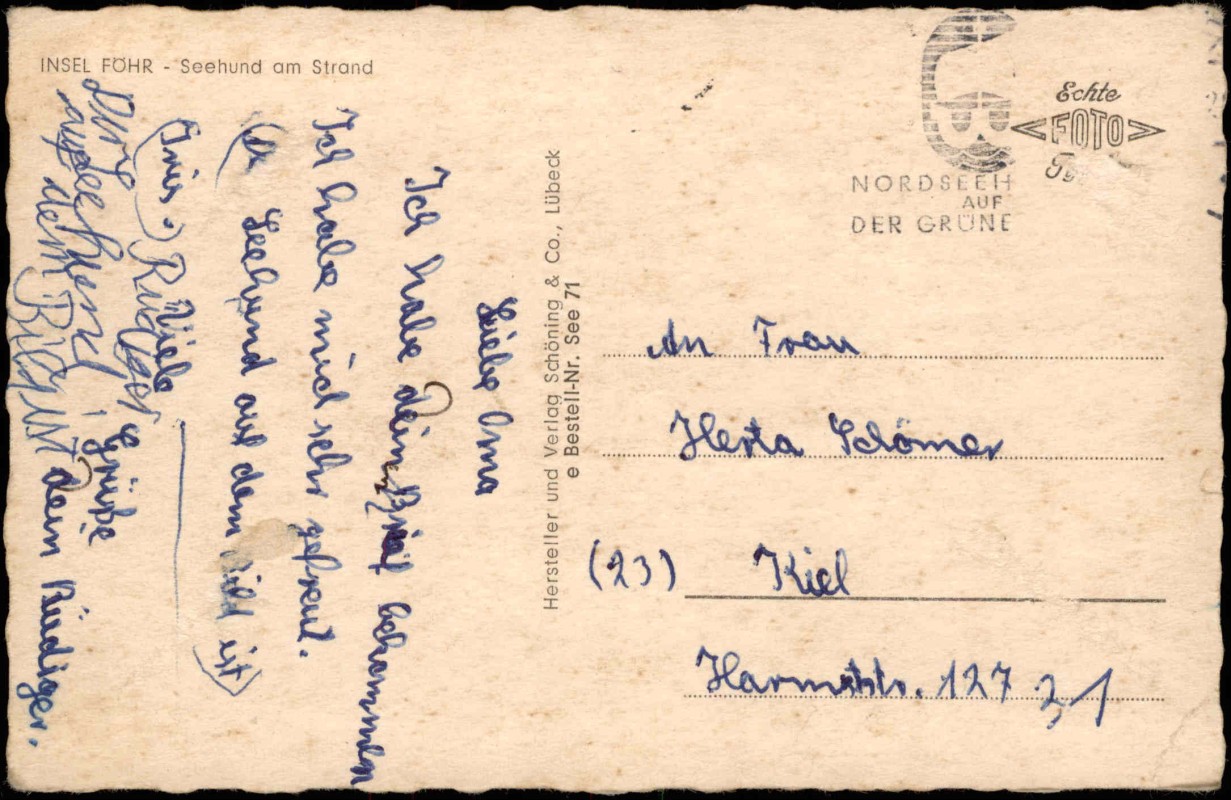 INSEL FÖHR - Seehund am Strand
Liebe Oma
Ich habe deinen Brief bekommen
Ich habe mich sehr gefreut.
Seehund auf dem Bild ist
Viele
Grüße
dein Rüdiger.
Hersteller und Verlag Schöning & Co., Lübeck
e Bestell-Nr. See 71
Echte
FOTO
NORDSEEH
AUF
DER GRÜNE
An Frau
Herta Schömer
(23) Kiel
Harmsstr. 127